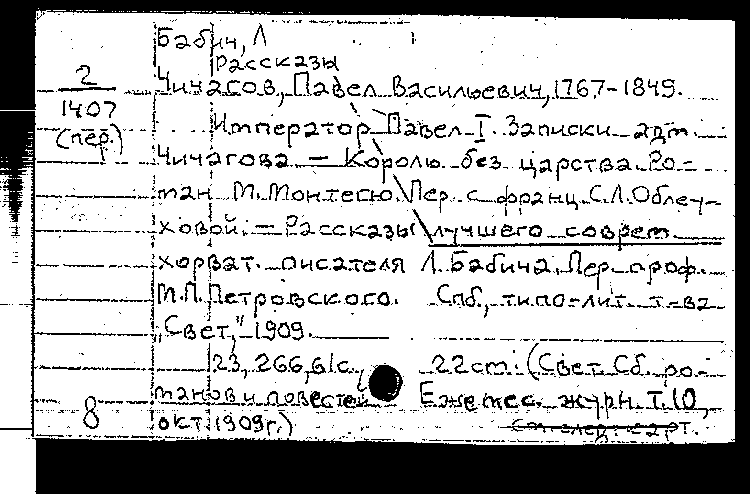 Бабич, Л
Рассказы
2
1407
(пер.)
Чичагов, Павел Васильевич, 1767-1849.
Император Павел I. Записки адм.
Чичагова — Королю без царства. Ро-
ман М. Монтегю. Пер. с франц. С.Л. Облеу-
ховой. — Рассказы лучшего соврем.
хорват. писателя Л. Бабича. Пер. проф.
М.П. Петровского. Спб., типо-лит. т-ва
"Свет," 1909.
23, 266, 61с., 22 cm. (Свет. Сб. ро-
манов и повестей Ежемес. журн. Т. 10,
8
окт. 1909г.)
См. след. карт.